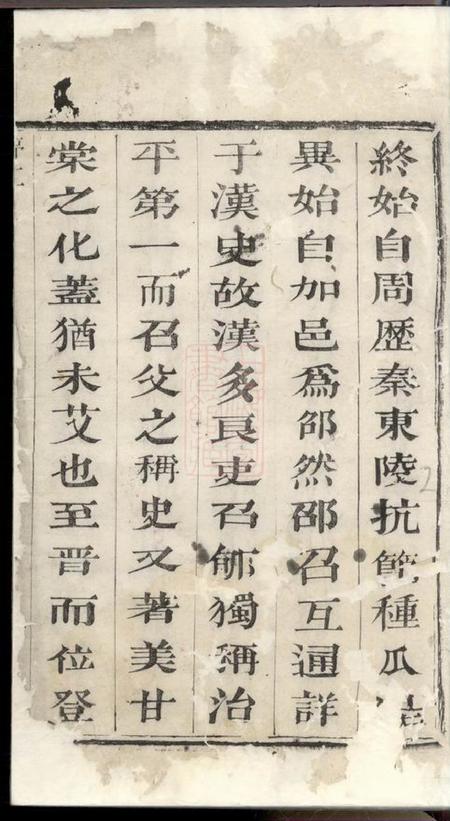 終始自周歷秦東陵抗節種瓜
異始自加邑爲邵然邵召互通詳
于漢史故漢多良吏召師獨稱治
平第一而召父之稱史又著美甘
棠之化蓋猶未艾也至晋而位登